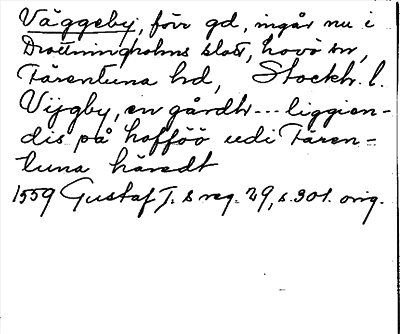 Väggeby, förr gd, ingår nu i
Drottningholms slott, Lovö sn,
Färentuna hd, Stockh. l.
Vijgby, en gårdh --- liggien-
dis på hofföö udi Fären-
tuna häredt
1559 Gustaf I:s reg. 29, s. 301. orig.